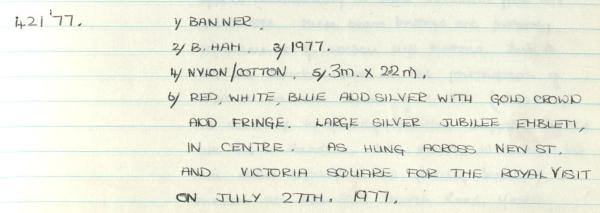 421'77. 1/ BANNER.
2/ B. HAM. 3/ 1977.
4/ NYLON/COTTON. 5/ 3m. x 2.2m.
6/ RED, WHITE, BLUE AND SILVER WITH GOLD CROWN
AND FRINGE. LARGE SILVER JUBILEE EMBLEM,
IN CENTRE. AS HUNG ACROSS NEW ST.
AND VICTORIA SQUARE FOR THE ROYAL VISIT
ON JULY 27TH. 1977.